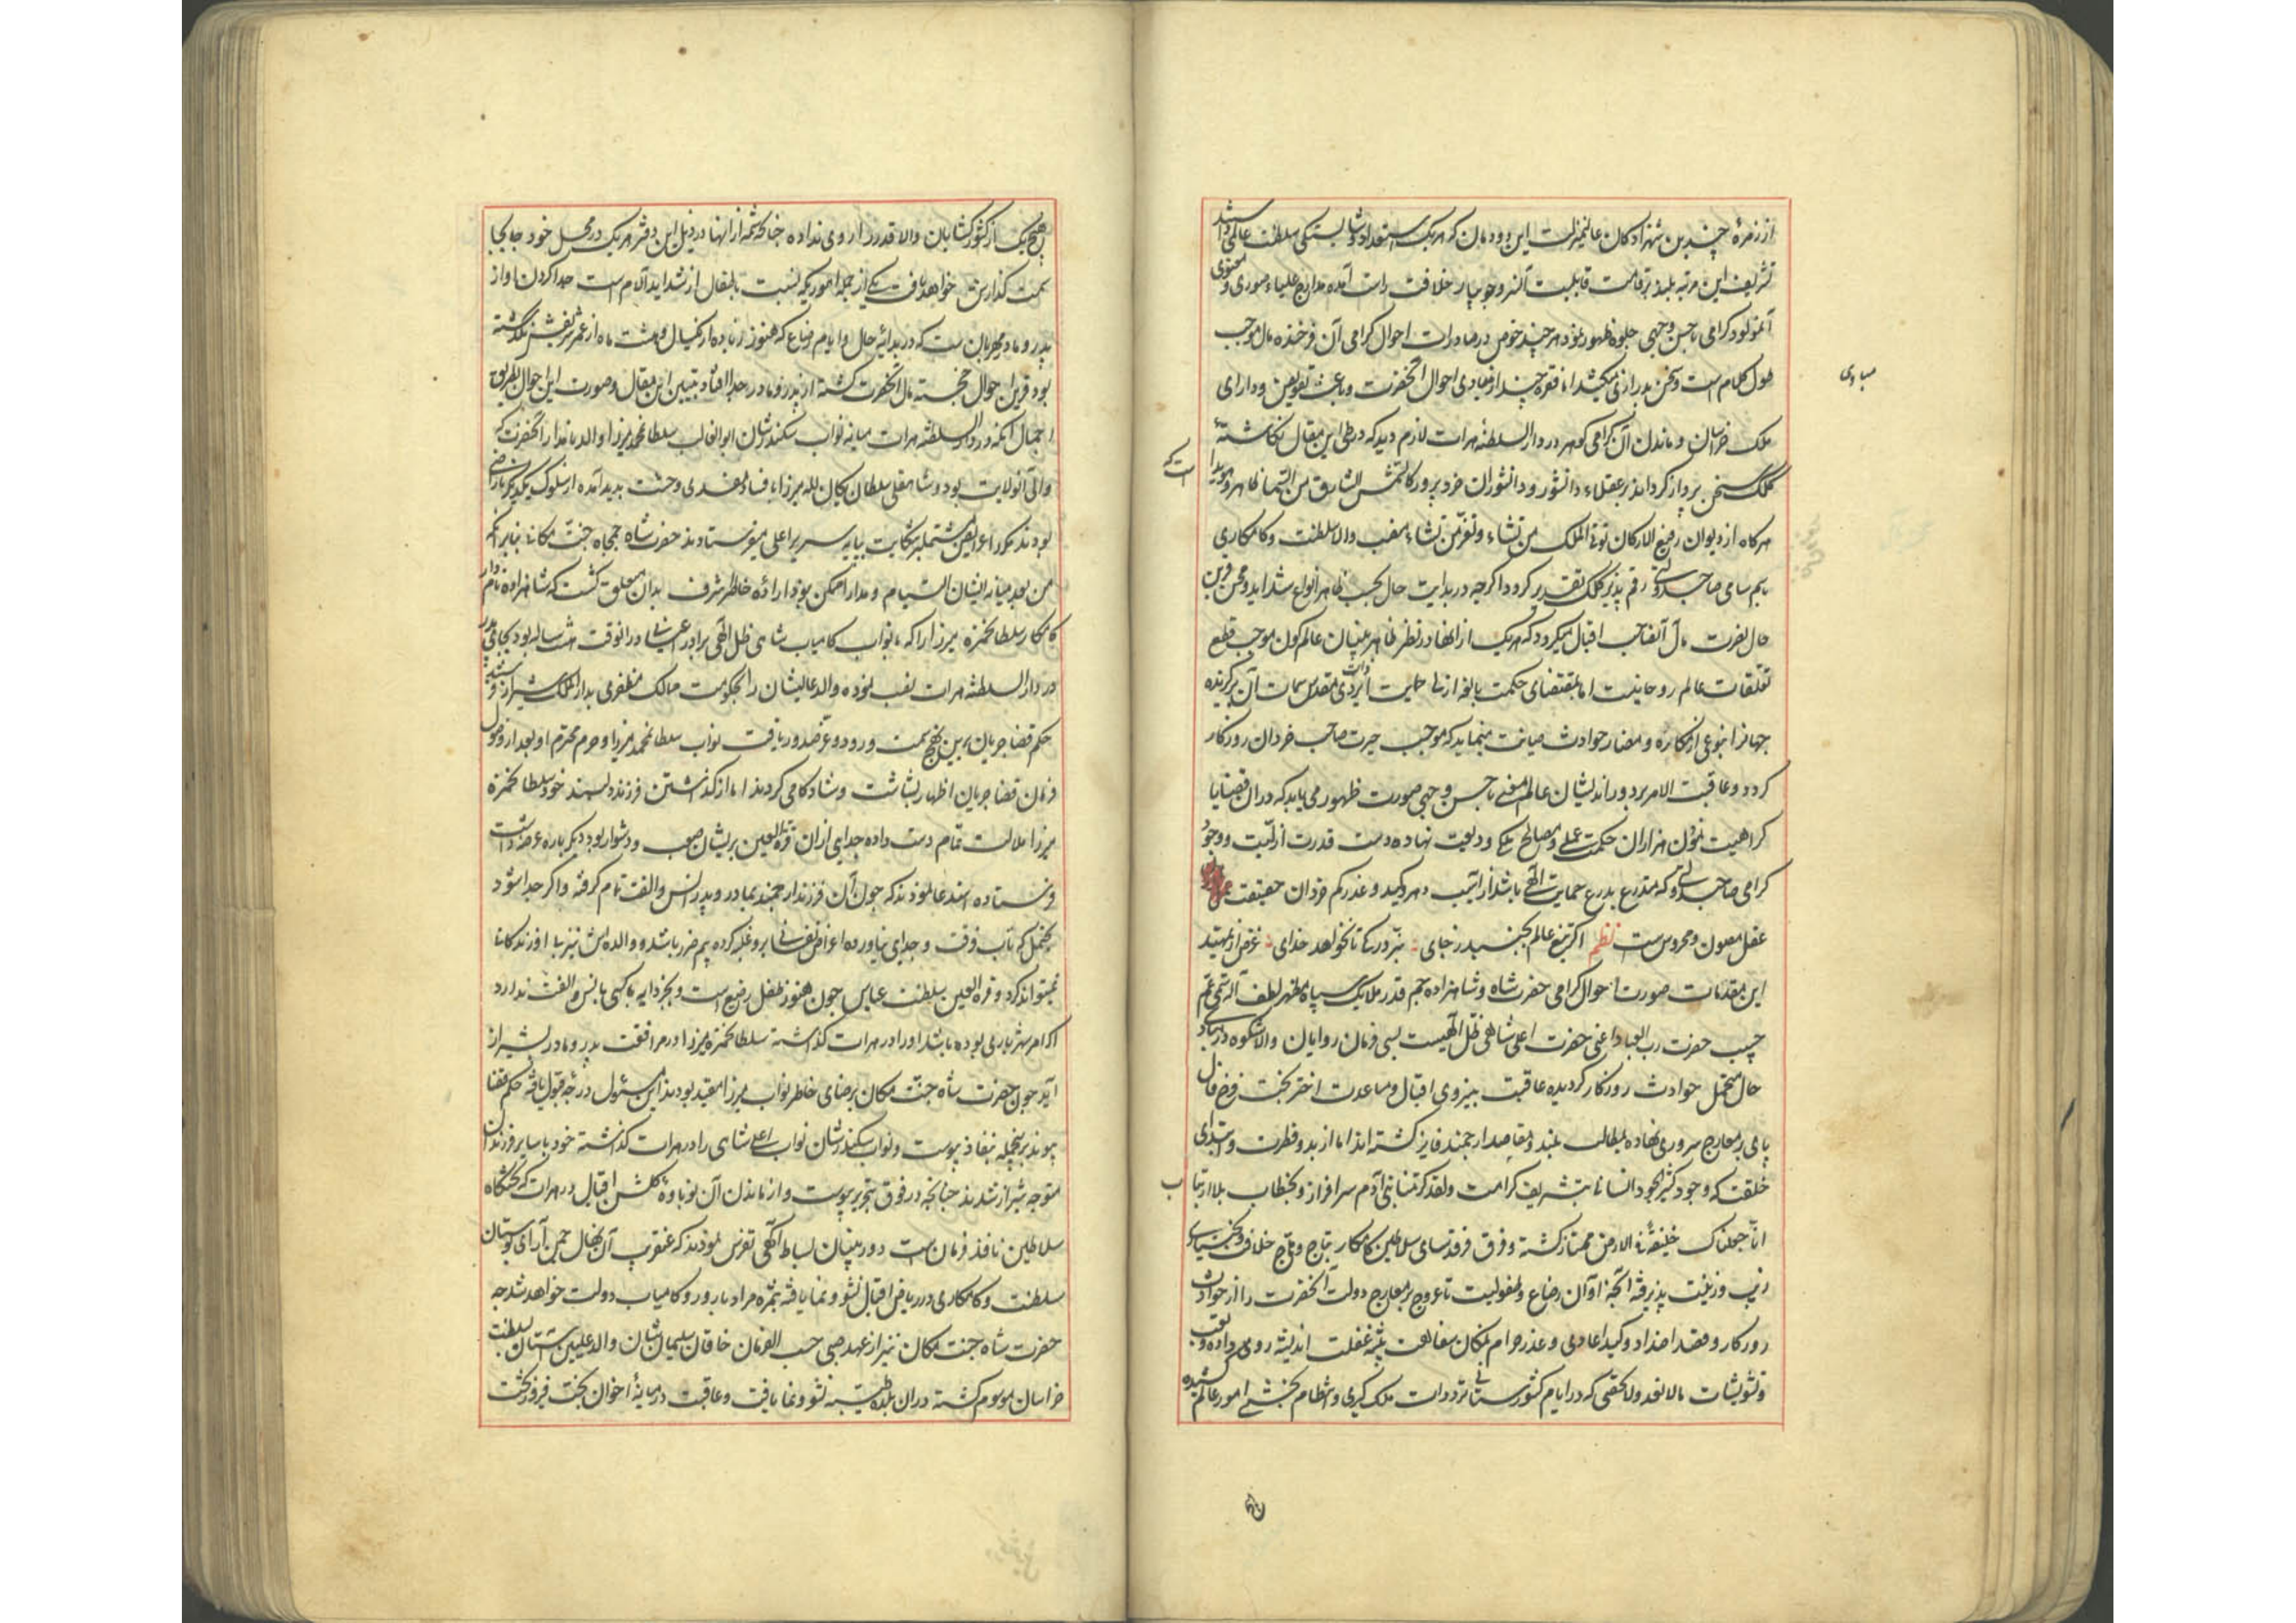 از زمرهٔ چندین شهزادکان عالیمنزلت این دودمان که هریک استعداد و شایستکی سلطنت عالمی داشتند
تشریف این مرتبه بلند بر قامت قابلیت آن سرو جویبار خلافت راست آمده مدارج علیاء صوری و معنوی
آنمولود کرامی باحسن وجهی جلوه ظهور نمود هرچند خوض در صادرات احوال کرامی آن فرخنده مآل موجب
طول کلام است و سخن بدرازی میکشد اما فقره چند از مبادی احوال آنحضرت و باعث تفویض دارای
ملک خراسان و ماندن آن کرامی کوهر در دارالسلطنهٔ هرات لازم دید که در طی این مقال نکاشتهٔ
کلک سخن پرداز کرداند بر عقلاء دانشور و دانشوران خردپرور کالشمس الشارق من السماء ظاهر و هویدا است که
هرکاه از دیوان رفیع الارکان تؤتی الملک من تشاء و تعز من تشاء منصب والاء سلطنت و کامکاری
باسم سامی صاحب دولتی رقم پذیر کلک تقدیر کردد اکرچه در بدایت حال بحسب ظاهر انواع شداید و محن قرین
حال نصرت مآل آنصاحب اقبال میکردد که هریک از آنها در نظر ظاهربینان عالم کون موجب قطع
تعلقات عالم روحانیت اما بمقتضای حکمت بالغه ازلی حمایت ایزدی ذات مقدس سمات آن برکزیده
جهانرا بنوعی از مکاره و مضار حوادث صیانت مینماید که موجب حیرت صاحب خردان روزکار
کردد و عاقبت الامر بر دوراندیشان عالم معنی باحسن وجهی صورت ظهور می یابد که در آن قضایا
کراهیت نمون هزاران حکمت عملی و مصالح ملکی ودیعت نهاده دست قدرت ازلیست و وجود
کرامی صاحب دولتی که متدرع بدرع حمایت الهی باشد از آسیب دهر و کید و غدر کم خردان حقیقت
عقل مصون و محروس است نظم اکر تیغ عالم بجنبد ز جای نبرد رکی تا نخواهد خدای غرض از تمهید
این مقدمات صورت احوال کرامی حضرت شاه و شاهزاده جم قدر ملایک سپاه مظهر لطف اله
حسیب حضرت رب العباد اعنی حضرت اعلی شاهی ظل اللهیست بسی فرمان روایان والاشکوه در مبادی
حال متحمل حوادث روزکار کردیده عاقبت بنیروی اقبال و مساعدت اختر بخت فرخ فال
پای بر معارج سروری نهاده بمطالب بلند و مقاصد ارجمند فایز کشته اند اما از بدو فطرت و ابتدای
خلقت که وجود کثیرالجود انسانی بتشریف کرامت ولقد کرمنا بنی آدم سرافراز و بخطاب بلاارتیاب
انا جعلناک خلیفة فی الارض ممتاز کشته و فرق فرقدسای سلاطین کامکار بتاج وهاج خلافت و بخت یاری
زیب و زینت پذیرفته آنچه از آوان رضاع و طفولیت تا عروج بر معارج دولت آنحضرت را از حوادث
روزکار و قصد اضداد و کید اعادی و غدر حرام نمکان سفاهت پیشه غفلت اندیشه روی داده و تعب
و تشویشات مالانعد ولاتحصی که در ایام کشورستانی و ترددات ملک کیری و انتظام بخشی امور عالم کشیده
مبادی
هیچ یک از کشورکشایان والاقدر را روی نداده چنانکه شمه از آنها در ذیل این دفتر هریک در محل خود جابجا
سمت کذارش خواهد یافت یکی از جمله اموریکه نسبت باطفال از شداید آلام است جدا کردن او از
پدر و مادر مهربان است که در بدایهٔ حال و ایام رضاع که هنوز زیاده از یکسال و هشت ماه از عمر شریفش نکذشته
بود قرین احوال خجسته مآل آنحضرت کشته از پدر و مادر جدا افتاد تبیین این مقال و صورت این احوال بطریق
اجمال آنکه در دارالسلطنه هرات میانه نواب سکندرشان ابوالغالب سلطان محمد میرزا والد نامدار آنحضرت که
والی آنولایت بود و شاهقلی سلطان یکان لله میرزا فساد و وحشت پدید آمده از سلوک یکدیکر ناراضی
بودند مکررا عرایض مشتمل بر شکایت بپایه سریر اعلی میفرستادند حضرت شاه جمجاه جنت مکان بنابر آنکه
من بعد میانه ایشان التیام و مدارا ممکن نبود ارادهٔ خاطر اشرف بدان متعلق کشت که شاهزاده نامدار
کامکار سلطان حمزه میرزا را که با نواب کامیاب شاهی ظل اللهی برادر اعیانی در آنوقت هشت ساله بود بجای پدر
در دارالسلطنه هرات نصب نموده والد عالیشان را بحکومت ممالک مظفری بدارالملک شیراز
حکم قضا جریان برین نهج سمت ورود و عز صدور یافت نواب سلطان محمد میرزا و حرم محترم او بعد از وصول
فرمان قضا جریان اظهار بشاشت و شادکامی کردند اما از کذاشتن فرزند دلبند خود سلطان حمزه
میرزا ملالت تمام دست داده جدایی از آن قرةالعین بریشان صعب و دشوار بود دیکر باره عرضه داشت
فرستاده استدعا نمودند که چون آن فرزند ارجمند بمادر و پدر انس و الفت تمام کرفته و اکر جدا شود
یحتمل که تاب فرقت و جدایی نیاورده اعراض نفسانی بر او غلبه کرده بیم ضرر باشد و والده اش نیز بی او زندکانی
نمیتواند کرد و قرةالعین سلطنت عباس چون هنوز طفل رضیع است و بجز دایه با کسی انس و الفت ندارد
اکر امر شهریاری بوده باشد او را در هرات کذاشته سلطان حمزه میرزا در مرافقت پدر و مادر بشیراز
آید چون حضرت شاه جنت مکان برضای خاطر نواب میرزا مقید بودند این مسئول درجه قبول یافته حکم قضا
پیوند برینجمله نفاذ پیوست و نواب سکندرشان نواب اعلی شاهی را در هرات کذاشته خود با سایر فرزندان
متوجه شیراز شدند چنانچه در فوق تحریر پیوست و از ماندن آن نوباوه کلشن اقبال در هرات که تختکاه
سلاطین نافذ فرمان است دوربینان بساط آکهی تفرس نمودند که عنقریب آن نهال چمن آرای بوستان
سلطنت و کامکاری در ریاض اقبال نشو و نما یافته بثمره مراد بارور و کامیاب دولت خواهد شد چه
حضرت شاه جنت مکان نیز از عهد صبی حسب الفرمان خاقان سلیمان شان والد علیین آشیان بسلطنت
خراسان موسوم کشته در آن بلده طیبه نشو و نما یافت و عاقبت در میانهٔ اخوان بخت فیروز بخت